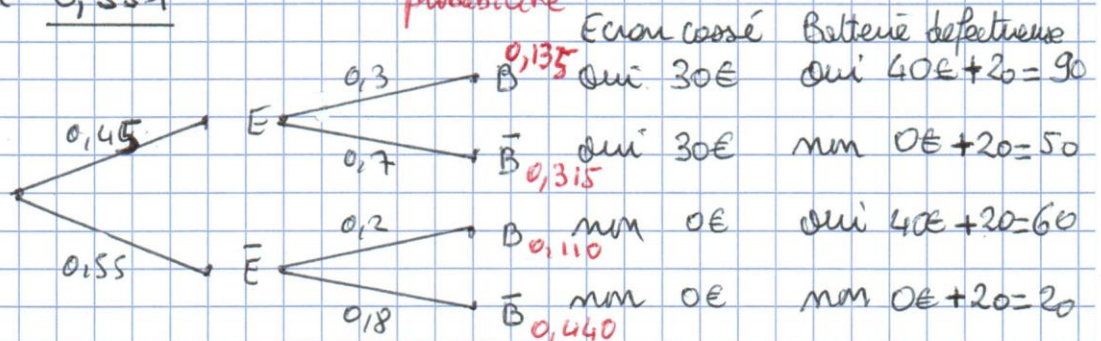 0,551
probabilité
Ecran cassé Batterie defectueuse
0,45 E 0,3 B 0,135 oui 30€ oui 40€ +20= 90
0,7 B̄ 0,315 oui 30€ non 0€ +20= 50
0,55 Ē 0,2 B 0,110 non 0€ oui 40€ +20=60
0,8 B̄ 0,440 non 0€ non 0€ +20= 20